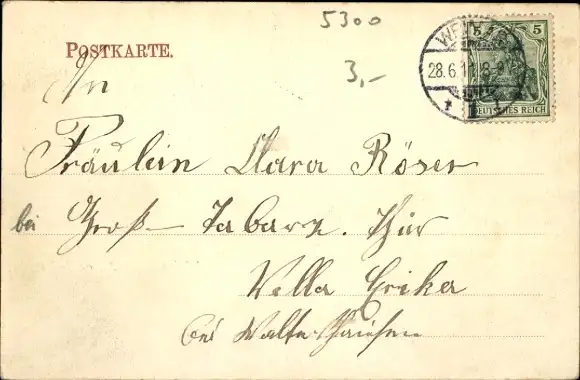 5300
POSTKARTE.
3,-
WEI
28.6.1
5 5
DEUTSCHES REICH
An
Fräulein Clara Röser
bei Groß-Tabarz. Thür
Villa Erika
bei Waltershausen